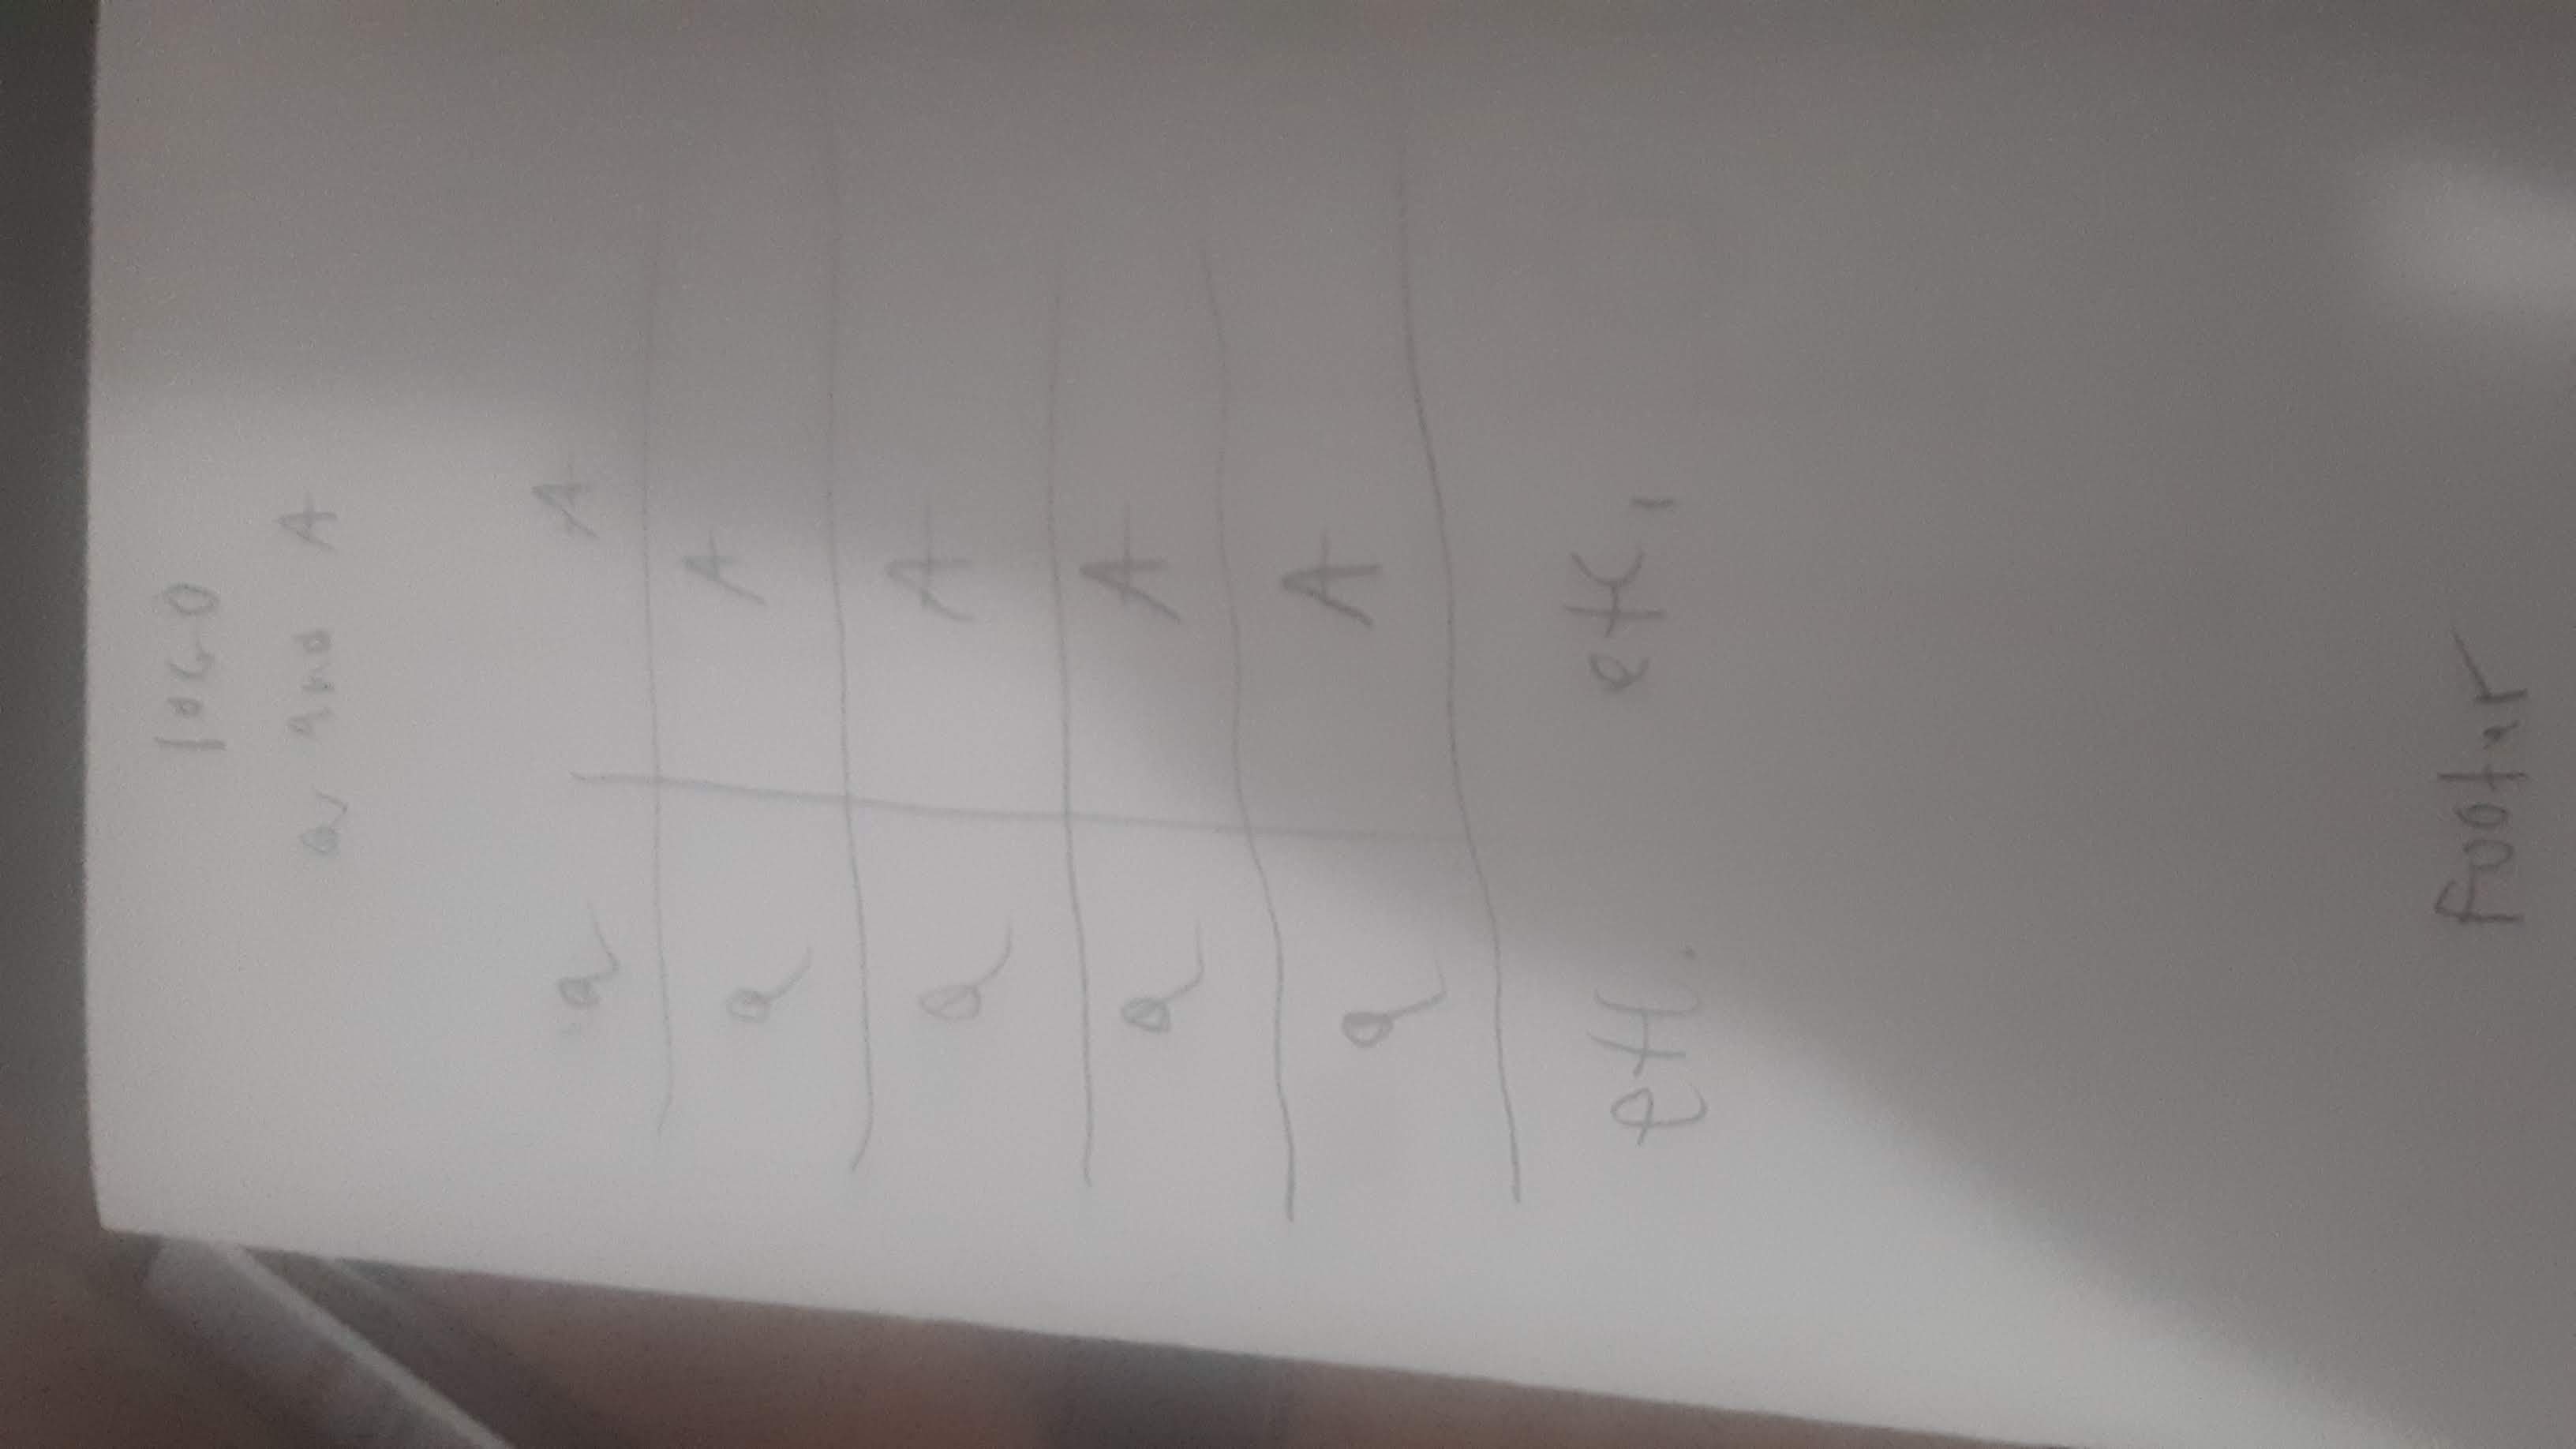 logo
Q and A
Q A
Q A
Q A
Q A
Q A
etc. etc.
Footer